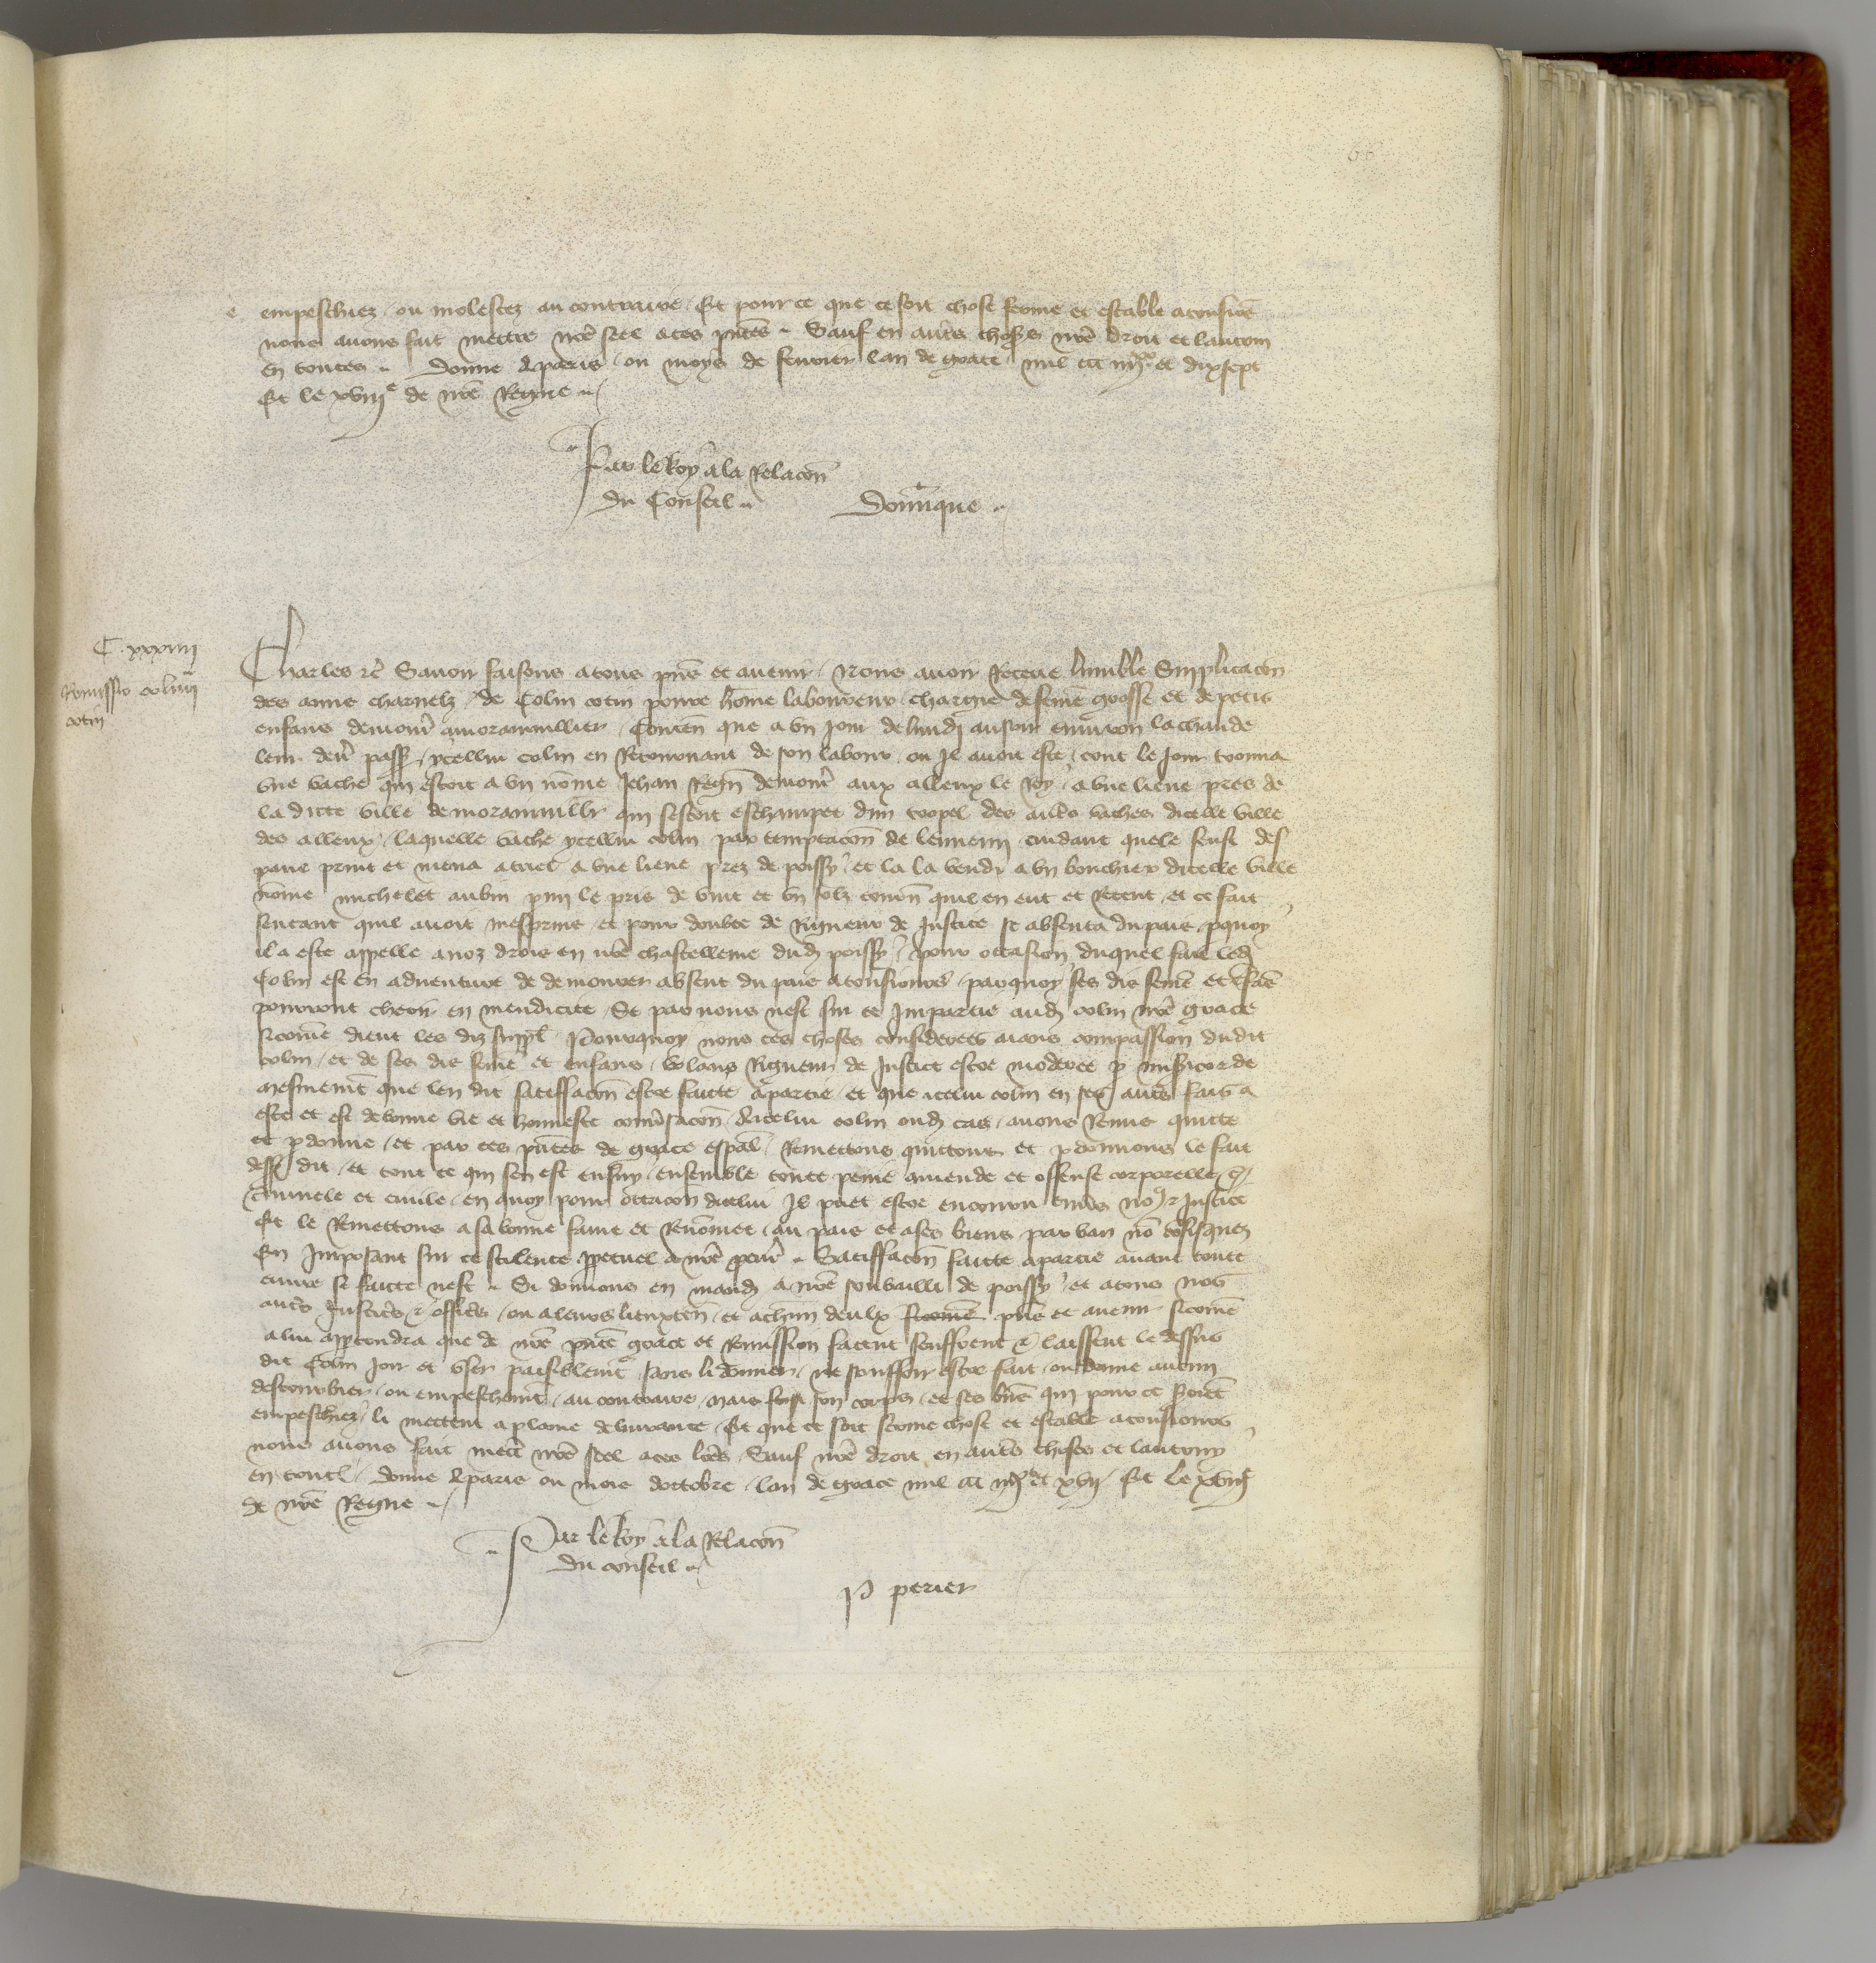 empeschiez ou molestez au contraire Et pour ce que ce soit chose ferme et estable
nous avons fait mettre nrē seel a ces pñtes Sauf en autrēs choses nrē droit et lautruy
en toutes Donne a paris ou moys de fevrier lan de grace mil ccc iiijxx et dixsept
Et le xviije de nrē Regne
Par le Roy a la Relacoñ
du Conseil Domĩque
C xxxiiij
Remissio colini
cotin
Charles rc̃ Savoir faisons a tous pñs et avenir Nous avoir Receue lumble Supplicacoñ
des amis charnelz de Colin cotin povre hom̃e laboureur chargie de fem̃e grosse et de petis
enfans demour̃ a morainvillier Conteñ que a un jour de lundi au soir environ la chande
leur derr̃ pass̃ ycellui colin en Retournant de son labour ou Il avoit este tout le jour trouva
une vache qui estoit a un nom̃e Jehan demour̃ aux alleux le Roy a une lieue pres de
la dicte ville de morainvillr̃ qui sestoit eschampee dun tropel des autr̃s vaches dicelle ville
des alleux laquelle vache ycellui colin par temptacoñ de lennemi cuidant quele feust des
pave print et mena a une lieue prez de poissy et la la vendi a un bouchier dicelle ville
nom̃e michelet aubin pmi le pris de vint et un solz tourñ quil en eut et Receut et ce fait
sentant quil avoit mesprins et pour doubte de Rigueur de Justice se absenta du pais pquoy
il a este appelle a noz drois en nrē chastellenie dud poissy pour occasion duquel fait led
Colin est en adventure de demourer absent du pais a tousjours parquoy ses dis fem̃e et enfañs
pourront cheoir en mendicite Se par nous nest sur ce Impartie aud colin nrē grace
si com̃e dient les diz suppl̃ Pourquoy nous ces choses considerees aians compassion dudit
colin et de ses dis fem̃e et enfans voulans Rigueur de Justice estre moderee p misericorde
mesmemẽt que len dit satisffacoñ estre faicte a partie et que icelui colin en ses autr̃s fais a
este et est de bonne vie et honneste convsacoñ A icelui colin oud cas avons Remis quitte
et pdonne et par ces pñtes de grace especl̃ Remettons quittons et pdonnons le fait
dess̃ dit et tout ce qui sen est ensuy ensemble toute peine amende et offense corporelle
criminele et civile en quoy pour occacon dicelui Il puet estre encouru envers nous et Justice
Et le Remettons a sa bonne fame et Renom̃ee au pais et a ses biens par ban nõ confisquez
En Imposant sur ce scilence ppetuel a nrē procur̃ Satisffacoñ faicte a partie avant toute
euvre se faicte nest Si donnons en mand̃ a nrē soubailli de poissy et a tous nos
autr̃s Justicr̃s et officr̃s ou a leurs lieuxteñ et a chũn deulx pñs et avenir si com̃e
a lui appartendra que de nrē pñte grace et Remission facent seuffrent et laissent le dessus
dit Colin joir et user paisiblemẽt sans li donner ne souffrir estre fait ou donne aucun
destourbier ou empeschemẽt au contraire mais son corps et ses biẽs qui pour ce seroiẽt
empeschiez li mettent a plaine delivrance Et que ce soit ferme chose et estable a tousjours
nous avons fait mettr̃ nrē seel a ces lrẽs Sauf nrē droit en autr̃s choses et lautruy
en toutes Donne a paris ou mois doctobre lan de grace mil ccc iiijxx et xvij Et le xviije
de nrē Regne
Par le Roy a la Relacoñ
du conseil
P perier